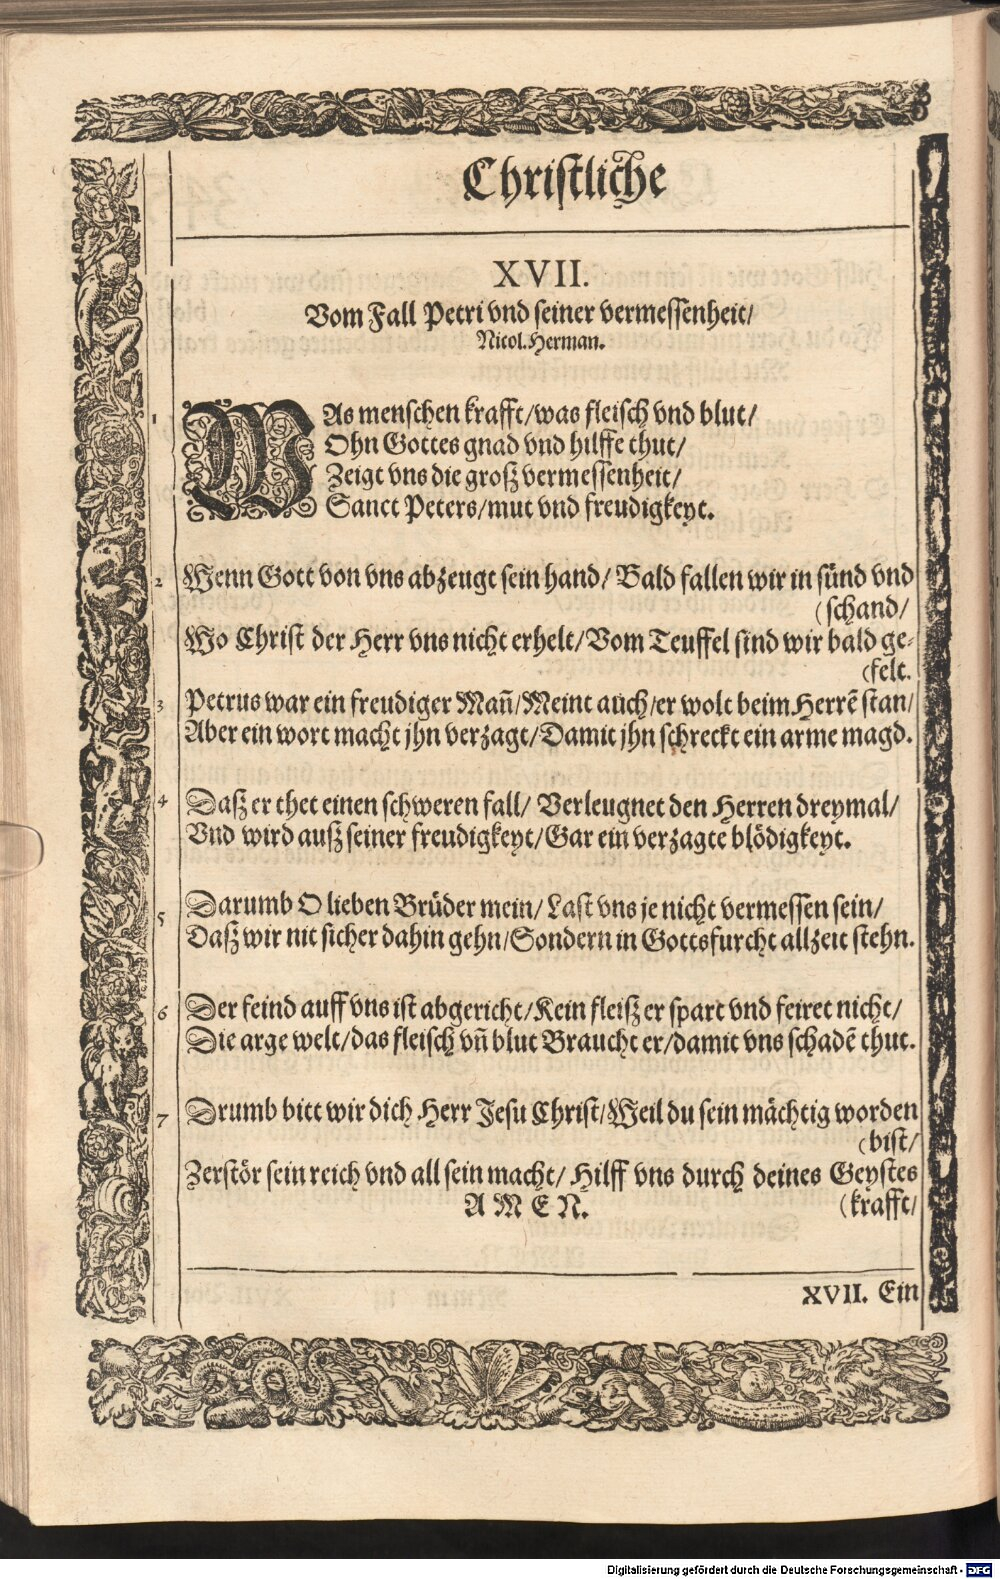 Christliche
XVII.
Vom Fall Petri vnd seiner vermessenheit/
Nicol. Herman.
1 WAs menschen krafft/was fleisch vnd blut/
Ohn Gottes gnad vnd hilffe thut/
Zeigt vns die groß vermessenheit/
Sanct Peters/mut vnd freudigkeyt.
2 Wenn Gott von vns abzeugt sein hand/ Bald fallen wir in sünd vnd
(schand/
Wo Christ der Herr vns nicht erhelt/Vom Teuffel sind wir bald ge-
(felt.
3 Petrus war ein freudiger Mañ/Meint auch/er wolt beim Herrē stan/
Aber ein wort macht jhn verzagt/Damit jhn schreckt ein arme magd.
4 Daß er thet einen schweren fall/ Verleugnet den Herren dreymal/
Vnd wird auß seiner freudigkeyt/Gar ein verzagte blödigkeyt.
5 Darumb O lieben Brüder mein/ Last vns je nicht vermessen sein/
Daß wir nit sicher dahin gehn/Sondern in Gottsfurcht allzeit stehn.
6 Der feind auff vns ist abgericht/Kein fleiß er spart vnd feiret nicht/
Die arge welt/das fleisch vñ blut Braucht er/damit vns schadē thut.
7 Drumb bitt wir dich Herr Jesu Christ/Weil du sein mächtig worden
(bist/
Zerstör sein reich vnd all sein macht/ Hilff vns durch deines Geystes
AMEN. (krafft/
XVII. Ein
Digitalisierung gefördert durch die Deutsche Forschungsgemeinschaft - DFG